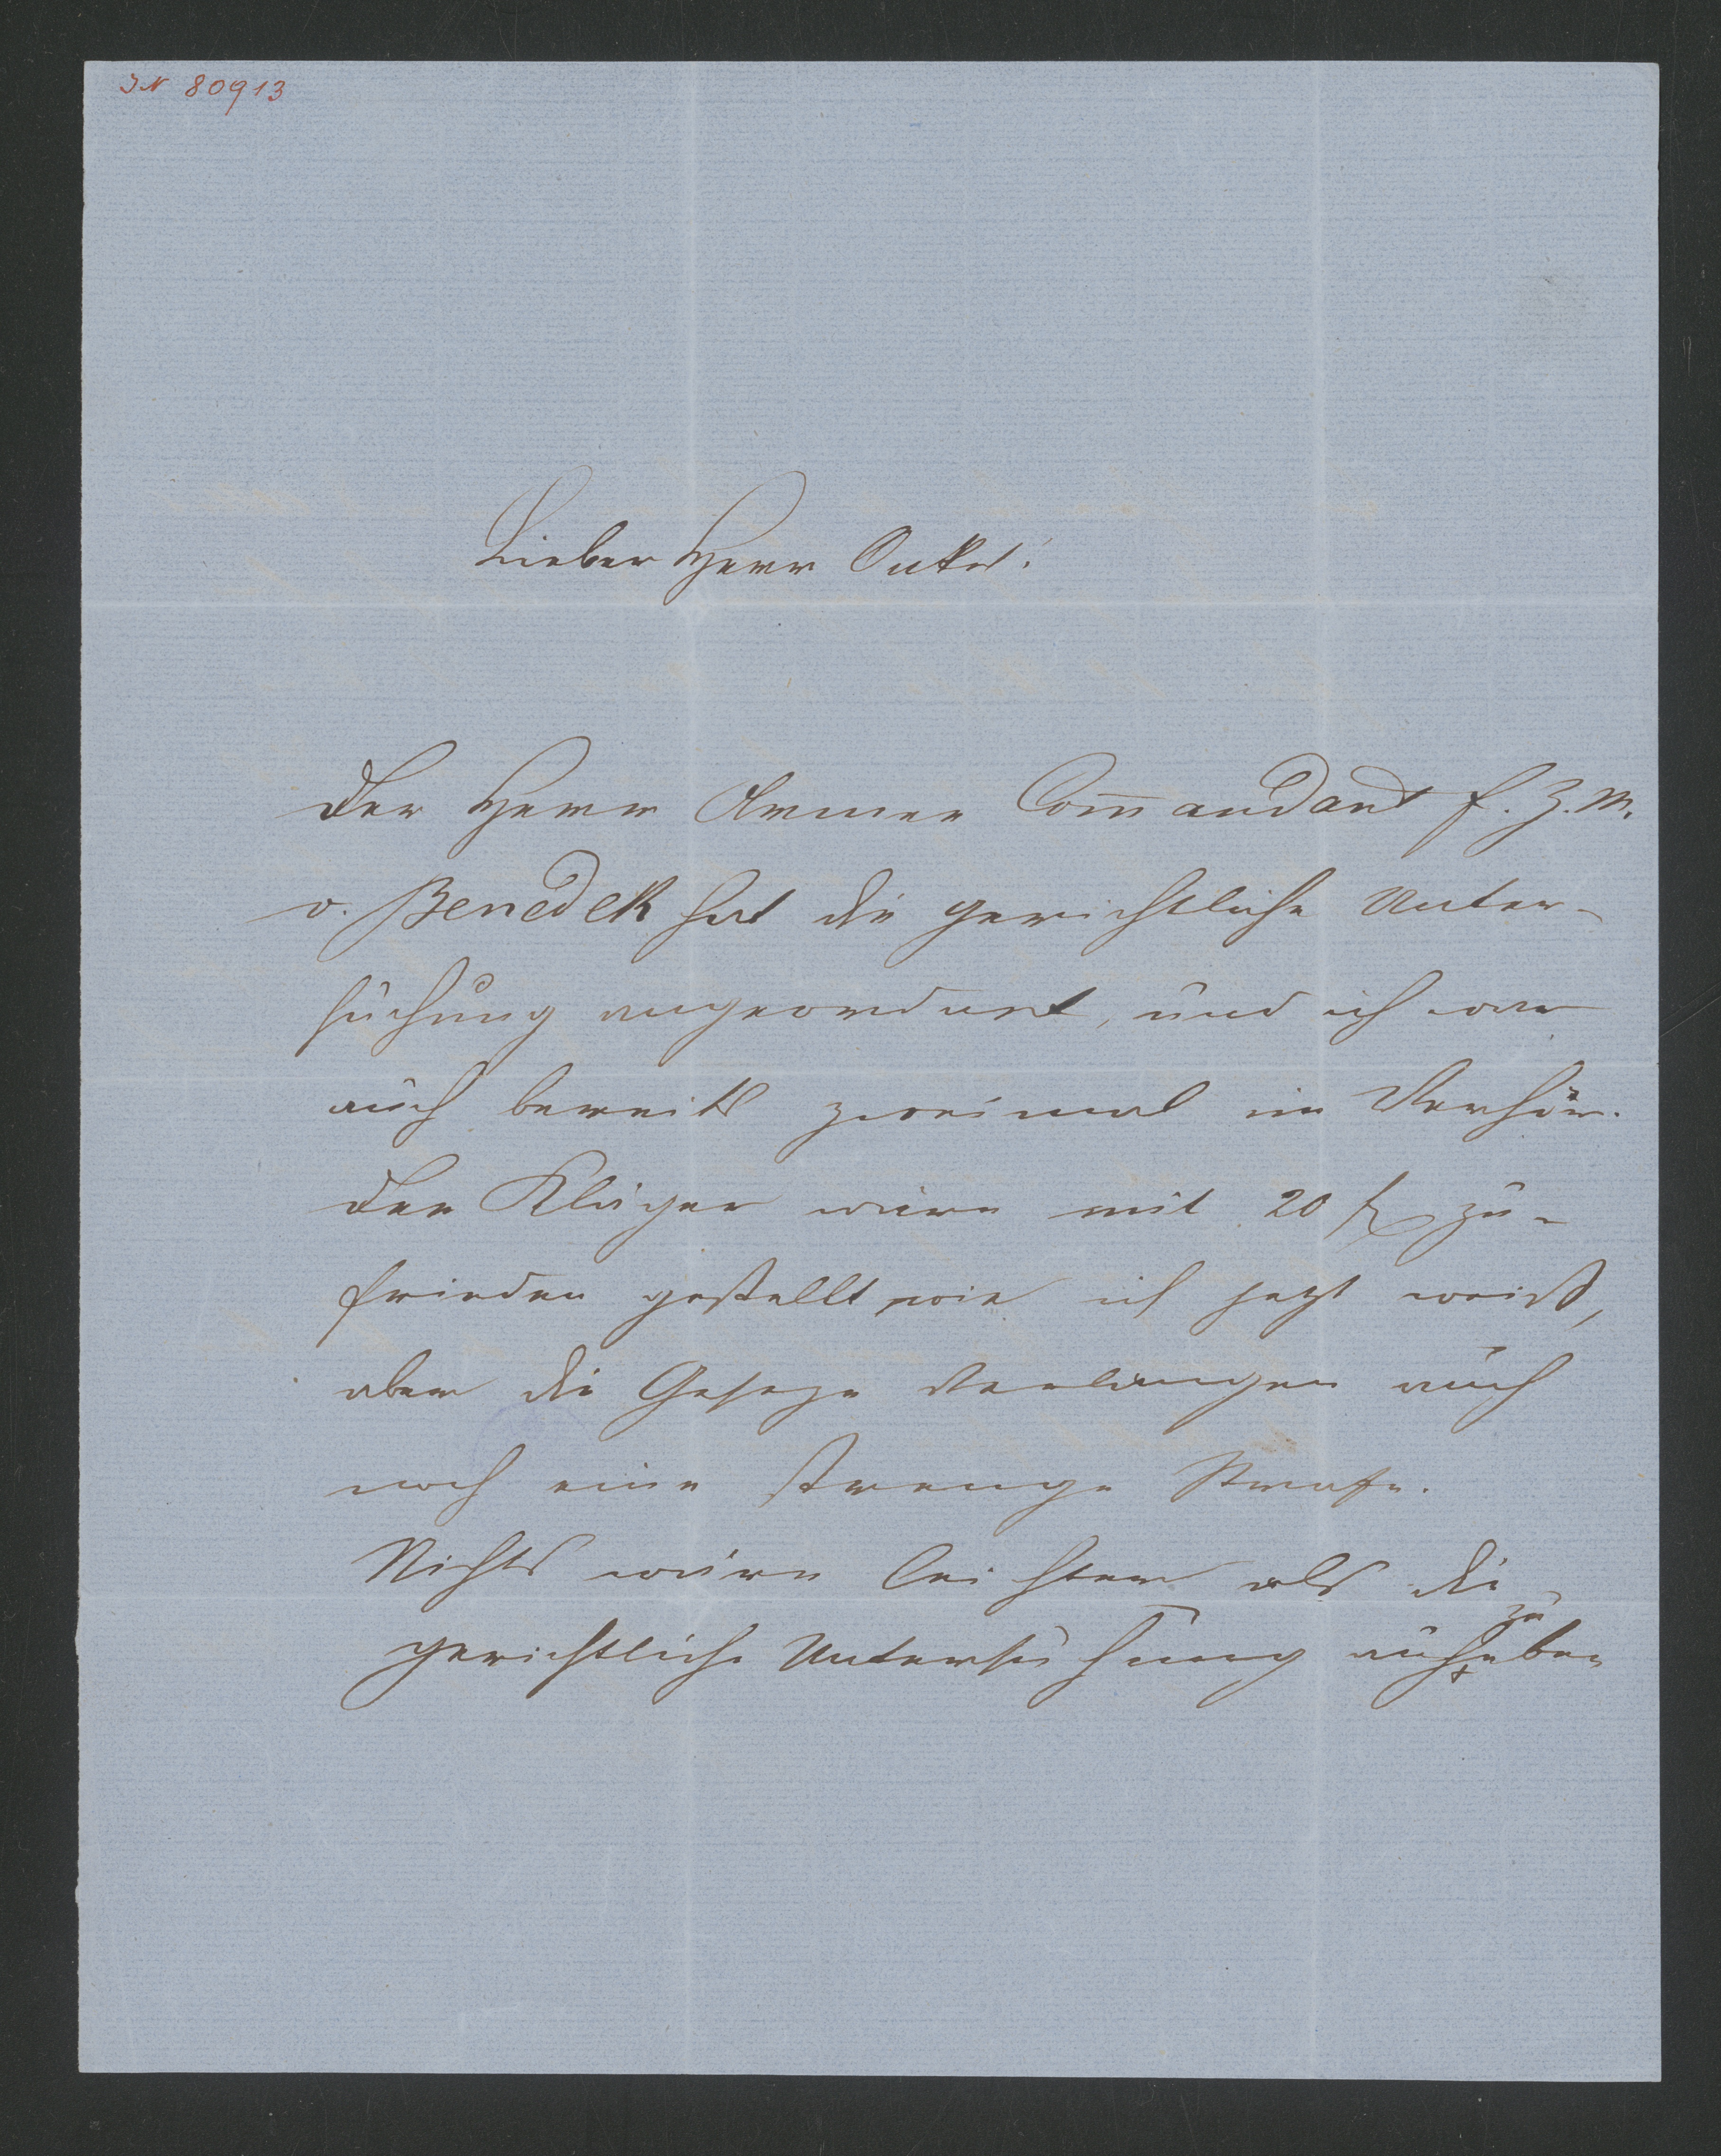 IN 80913
Lieber Herr Onkel!
Der Herr Armee Com̅andant F. Z. M.
v. Benedek hat die gerichtliche Unter-
suchung angeordnet, und ich war
auch bereits zweimal im Verhör.
Der Kläger wäre mit 20 f zu-
frieden gestellt wie ich jetzt weiß,
aber die Geseze verlangen auch
noch eine strenge Strafe.
Nichts wäre leichter als die
gerichtliche Untersuchung aufzuheben